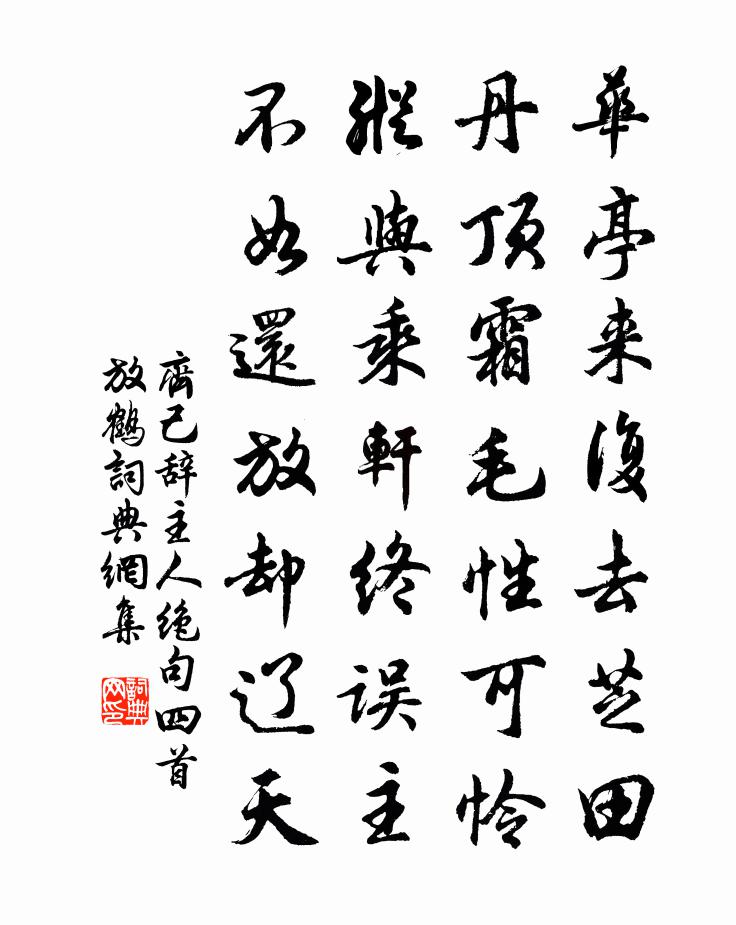 華亭来復去芝田
丹頂霜毛性可怜
縱與乘軒終誤主
不如還放却辽天
齊己辞主人绝句四首
放鶴詞典網集
詞典网印